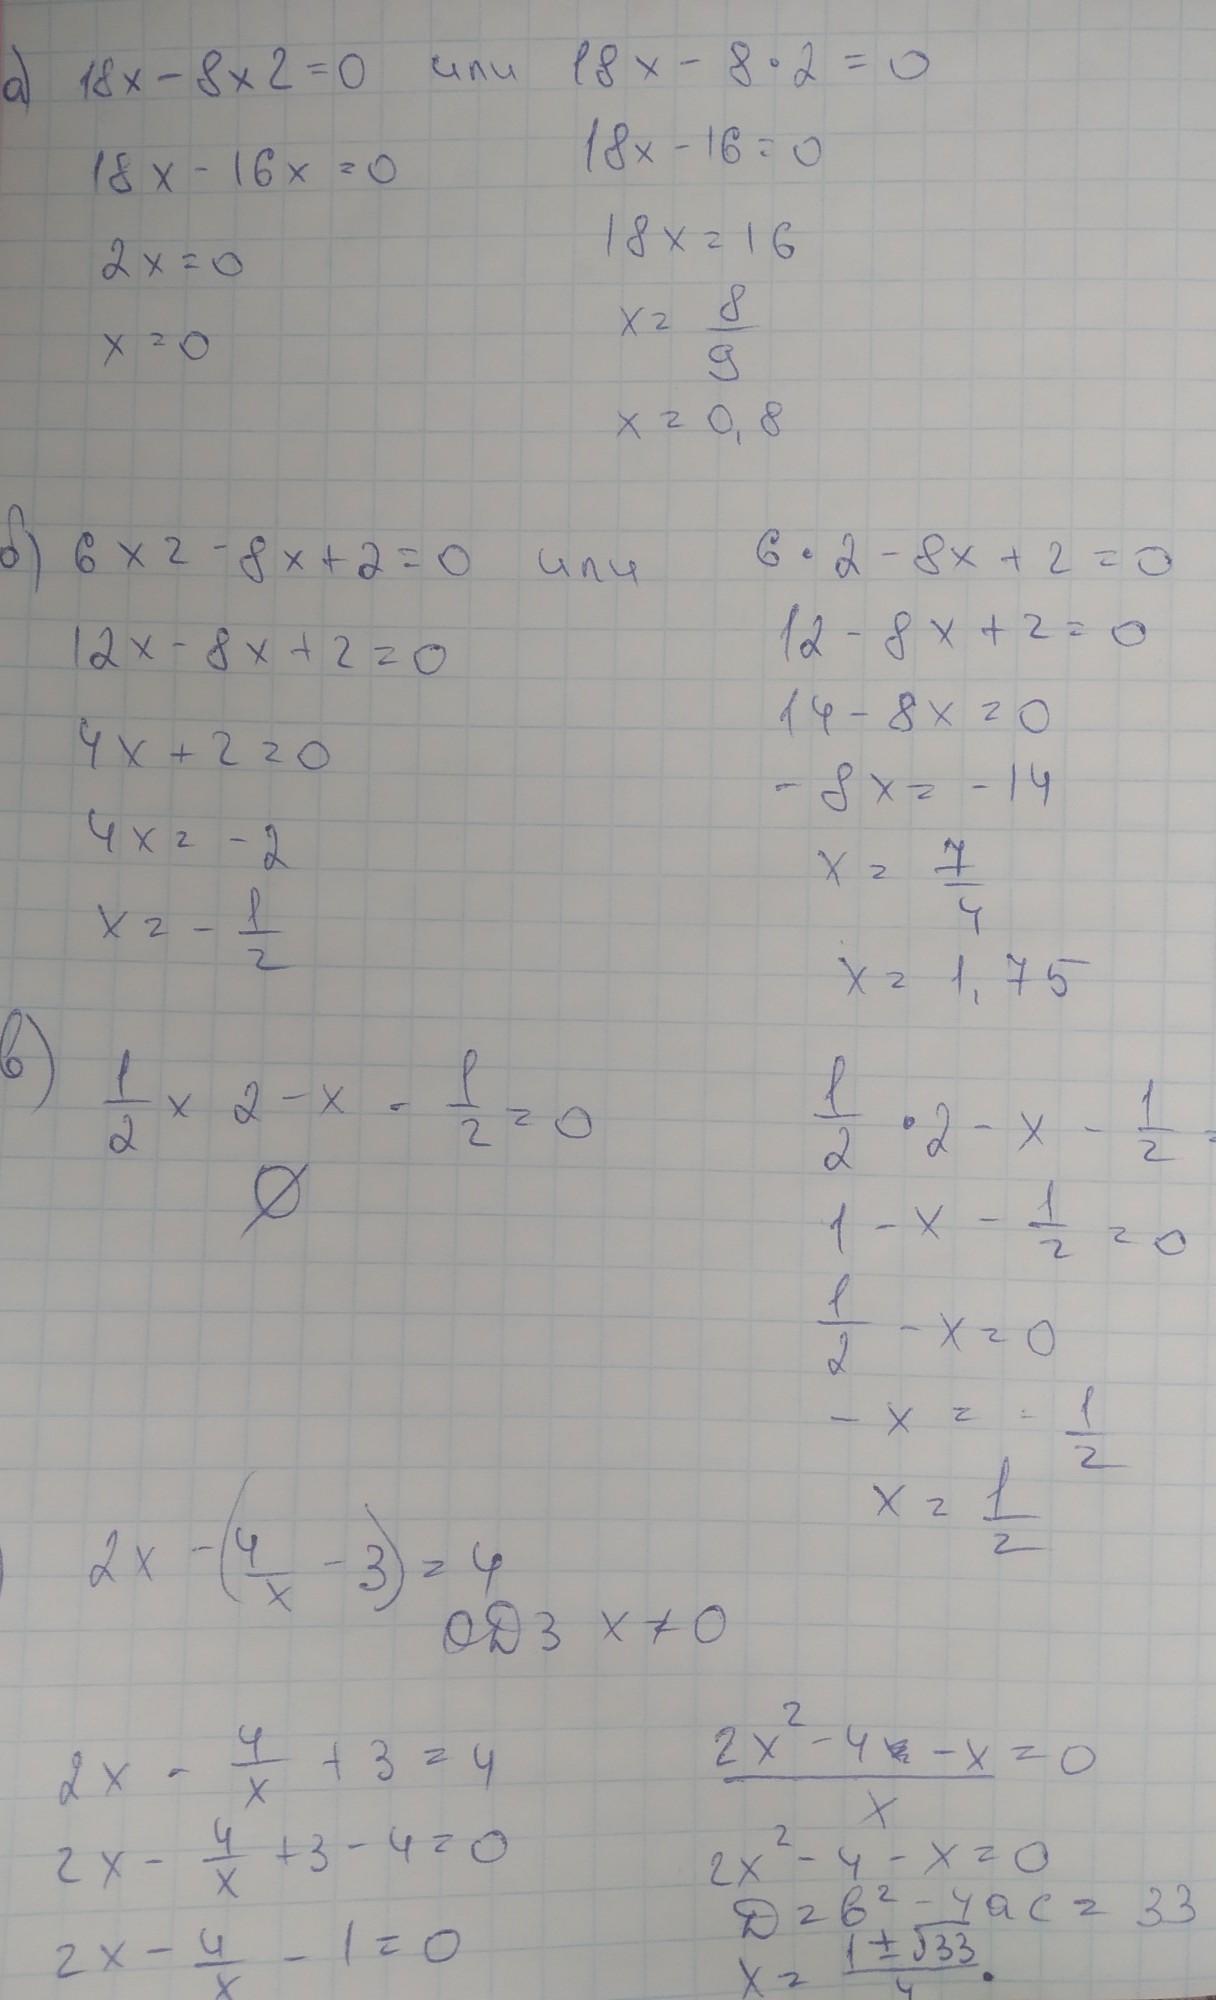 а) 18x - 8x2 = 0 или 18x - 8·2 = 0
18x - 16x = 0
18x - 16 = 0
2x = 0
18x = 16
x = 0
x = 8/9
x = 0,8
б) 6x2 - 8x + 2 = 0 или 6·2 - 8x + 2 = 0
12x - 8x + 2 = 0
12 - 8x + 2 = 0
4x + 2 = 0
14 - 8x = 0
4x = -2
-8x = -14
x = -1/2
x = 7/4
x = 1,75
в) 1/2 x 2 - x - 1/2 = 0
∅
1/2 · 2 - x - 1/2 =
1 - x - 1/2 = 0
1/2 - x = 0
-x = -1/2
x = 1/2
) 2x - (4/x - 3) = 4
ОДЗ x ≠ 0
2x - 4/x + 3 = 4
2x - 4/x + 3 - 4 = 0
2x - 4/x - 1 = 0
(2x² - 4 - x)/x = 0
2x² - 4 - x = 0
D = b² - 4ac = 33
x = (1 ± √33)/4.